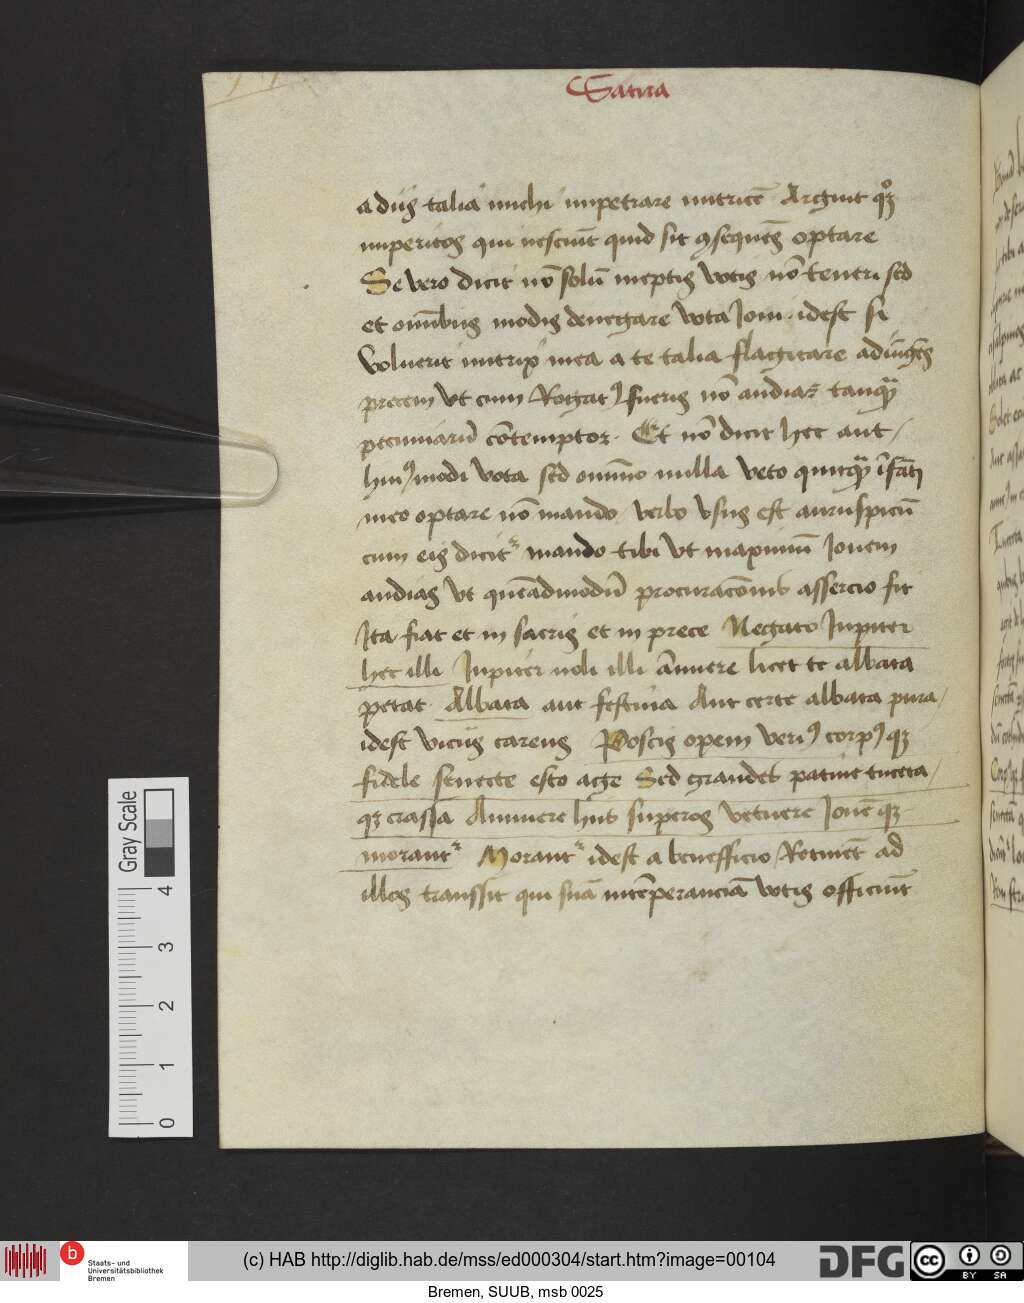 Satira
a diis talia michi impetrare nutricē Arguit qꝫ
imperitos qui nesciūt quid sit ꝯsequēs optare
Se vero dicit nō solū ineptis votis nō teneri sed
et omībus modis denegare vota Joui · idest si
voluerit nutrix mea a te talia flagitare adiūgēs
precem vt cum Rogatꝰ fueris nō audias tanquā
pecuniariū cōtemptor · Et nō dicit hec aut /
huiꝰmodi vota sed omīno nulla veto quicquā īfāti
meo optare nō mando verbo vsus est auruspicū
cum eis dicit᷑ mando tibi vt maximum Jouem
audias vt quēadmodū procuracōnis assercio sit
Ita fiat et in sacris et in prece Negato Jupiter
hec illi Jupiter noli illi ānnuere licet te albata
petat · Albata aut festiua Aut certe albata pura /
idest viciis carens Poscis opem neruꝰ corpꝰ qꝫ
fidele senecte esto age Sed grandes patine tuceta /
qꝫ crassa Annuere hiis superos vetuere Joue qꝫ
morant᷑ Morant᷑ idest a benefficio Retinēt ad
illos transsit qui suā intēperanciā votis officiūt
Gray Scale
4
3
2
1
0
b
Staats- und
Universitätsbibliothek
Bremen
(c) HAB http://diglib.hab.de/mss/ed000304/start.htm?image=00104
DFG
cc
BY SA
Bremen, SUUB, msb 0025